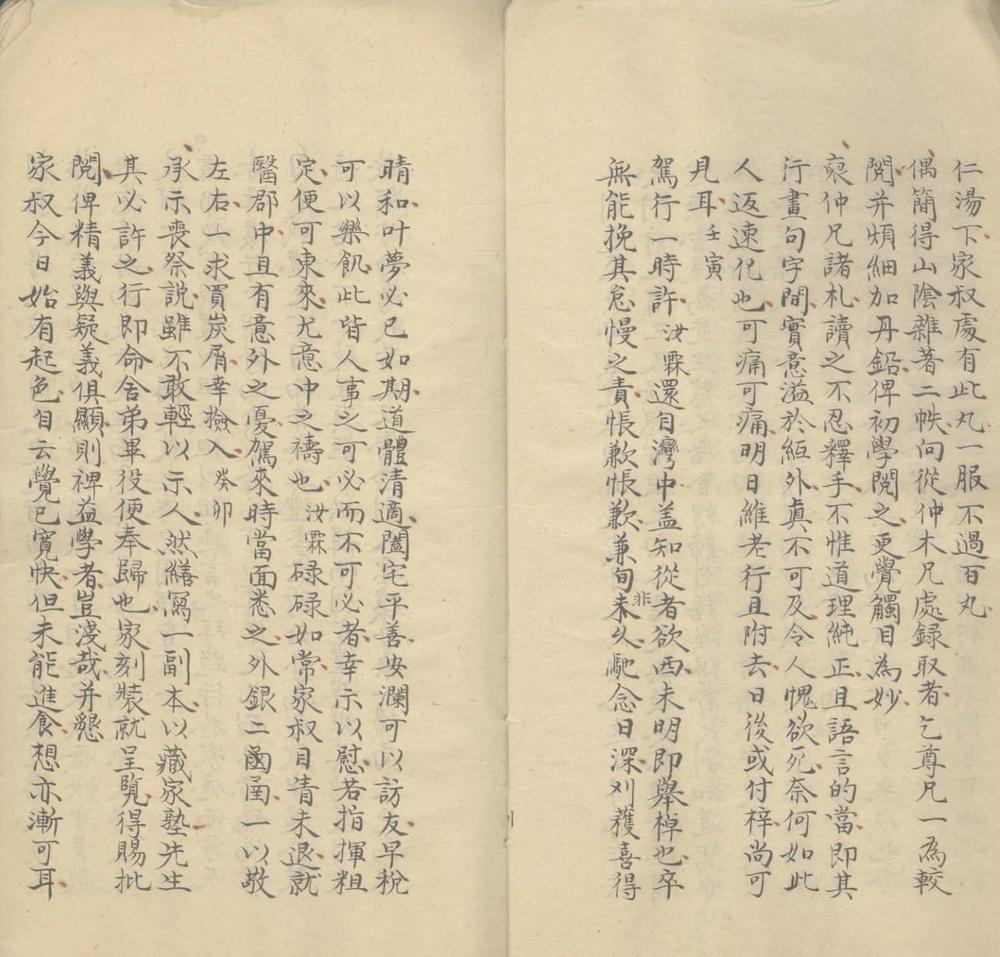 仁湯下家叔處有此丸一服不過百丸
偶簡得山陰雜著二帙向從仲木兄處録取者乞尊兄一為較
閱并煩細加丹鉛俾初學閱之更覺觸目為妙
裒仲兄諸札讀之不忍釋手不惟道理純正且語言的當即其
行畫句字間實意溢於絙外真不可及令人愧欲死奈何如此
人返速化也可痛可痛明日維老行且附去日後或付梓尚可
見耳壬寅
駕行一時許汝霖還自灣中盖知從者欲西未明即舉棹也卒
無能挽其怠慢之責悵歉悵歉兼旬非未久馳念日深刈穫喜得
晴和叶夢必已如期道體清適闔宅平善安瀾可以訪友早稅
可以樂飢此皆人事之可必而不可必者幸示以慰若指揮粗
定便可東來尤意中之禱也汝霖碌碌如常家叔目眚未退就
醫郡中且有意外之憂駕來時當面悉之外銀二凾凾一以敬
左右一求買炭屑幸撿入癸卯
承示喪祭說雖不敢輕以示人然繕寫一副本以藏家塾先生
其必許之行即命舍弟畢役便奉歸也家刻裝就呈覧得賜批
閱俾精義與疑義俱顯則裨益學者豈淺哉并懇
家叔今日始有起色自云覺已寬快但未能進食想亦漸可耳